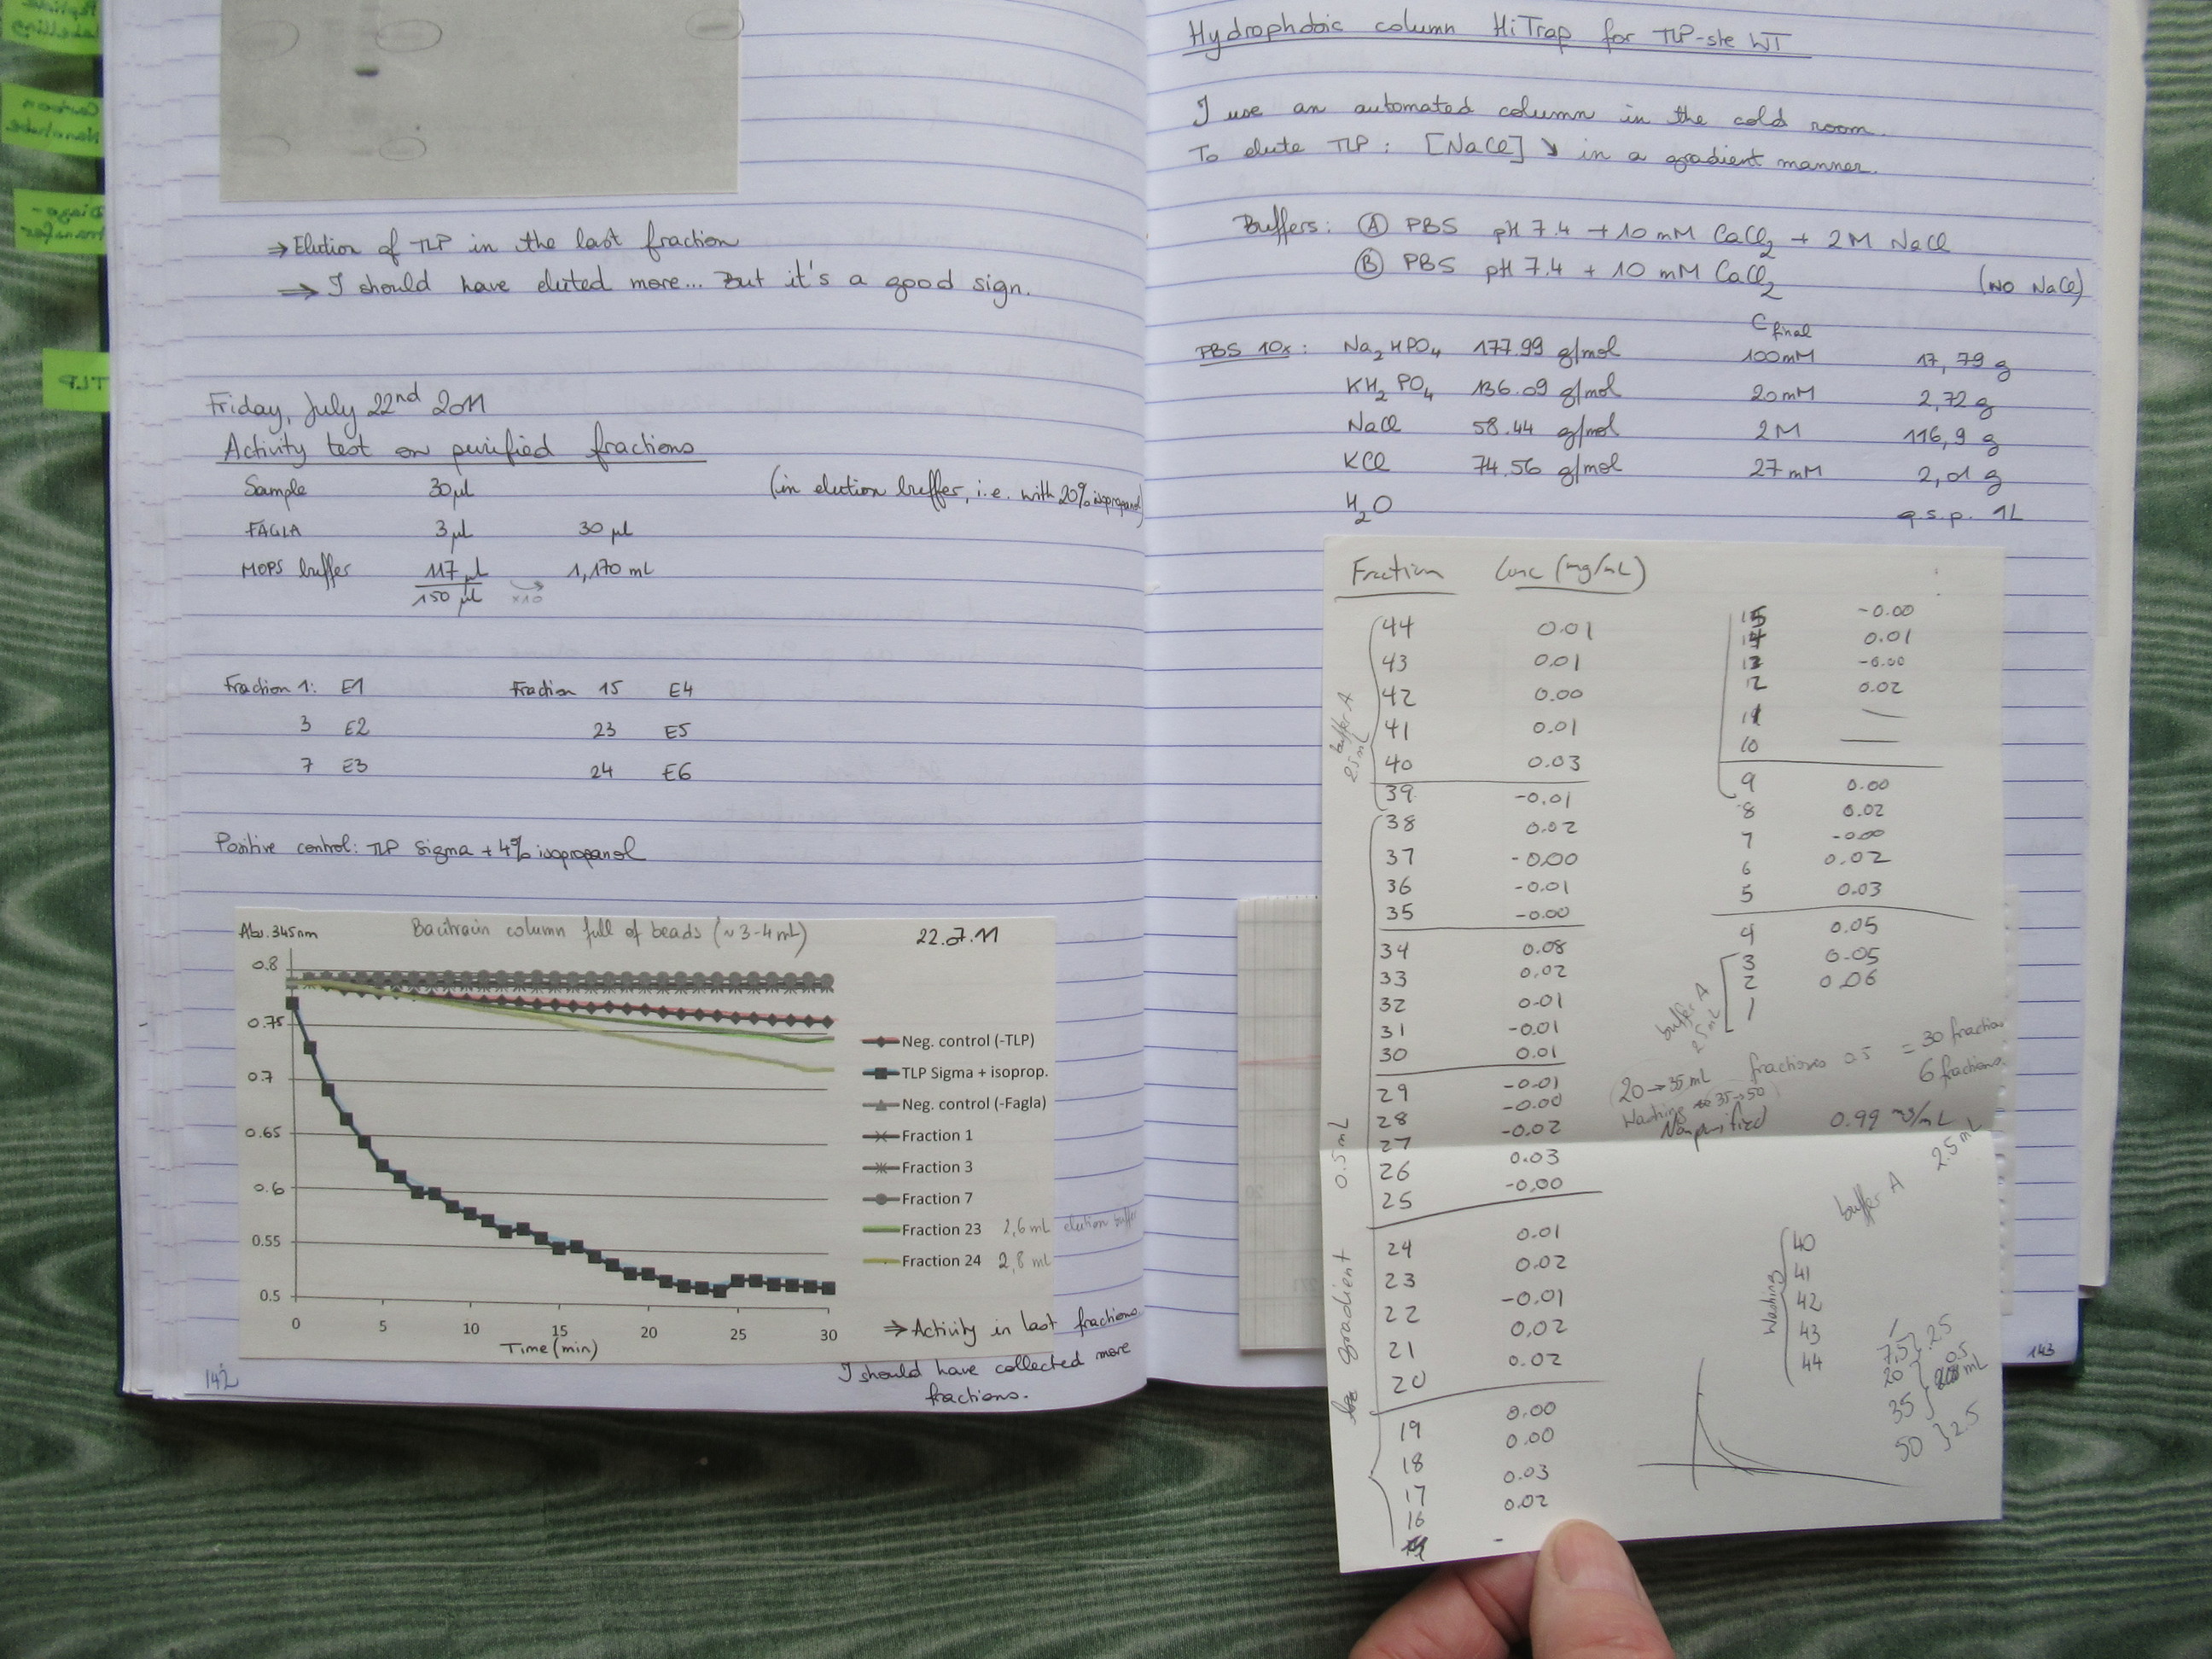 ⇒ Elution of TLP in the last fraction
⇒ I should have eluted more... But it's a good sign.
Friday, July 22nd 2011
Activity test on purified fractions
Sample 30µl (in elution buffer, i.e. with 20% isopropanol)
FAGLA 3µl 30 µl
MOPS buffer 117 µl 1,170 mL
150 µl x10
Fraction 1: E1 Fraction 15 E4
3 E2 23 E5
7 E3 24 E6
Positive control: TLP Sigma + 4% isopropanol
Abs. 345nm Bacitracin column full of beads (~3-4mL) 22.07.11
0.8
0.75
0.7
0.65
0.6
0.55
0.5
0 5 10 15 20 25 30
Time (min)
Neg. control (-TLP)
TLP Sigma + isoprop.
Neg. control (-Fagla)
Fraction 1
Fraction 3
Fraction 7
Fraction 23 2,6 mL elution buffer
Fraction 24 2,8 mL
⇒ Activity in last fractions.
I should have collected more
fractions.
142
TLP
Hydrophobic column HiTrap for TLP-ste WT
I use an automated column in the cold room.
To elute TLP: [NaCl] ↘ in a gradient manner.
Buffers: (A) PBS pH 7.4 + 10 mM CaCl2 + 2M NaCl
(B) PBS pH 7.4 + 10 mM CaCl2 (NO NaCl)
C final
PBS 10x: Na2HPO4 177.99 g/mol 100mM 17,79 g
KH2PO4 136.09 g/mol 20mM 2,72 g
NaCl 58.44 g/mol 2M 116,9 g
KCl 74.56 g/mol 27 mM 2,01 g
H2O q.s.p. 1L
Fraction Conc (mg/mL)
44 0.01
43 0.01
42 0.00
41 0.01
40 0.03
39 -0.01
38 0.02
37 -0.00
36 -0.01
35 -0.00
34 0.08
33 0.02
32 0.01
31 -0.01
30 0.01
29 -0.01
28 -0.00
27 -0.02
26 0.03
25 -0.00
24 0.01
23 0.02
22 -0.01
21 0.02
20 0.02
19 0.00
18 0.00
17 0.03
16 0.02
-
buffer A
25 mL
0.5 mL
gradient
15 -0.00
14 0.01
13 -0.00
12 0.02
11 —
10 —
9 0.00
8 0.02
7 -0.00
6 0.02
5 0.03
4 0.05
3 0.05
2 0.06
1
buffer A
2.5 mL
20→35 mL fractions 0.5 = 30 fractions
Washing 35→50 6 fractions.
Nonpurified 0.99 mg/mL
buffer A 2.5 mL
Washing
40
41
42
43
44
1
7.5 2.5
20 0.5 mL
35
50 2.5
143